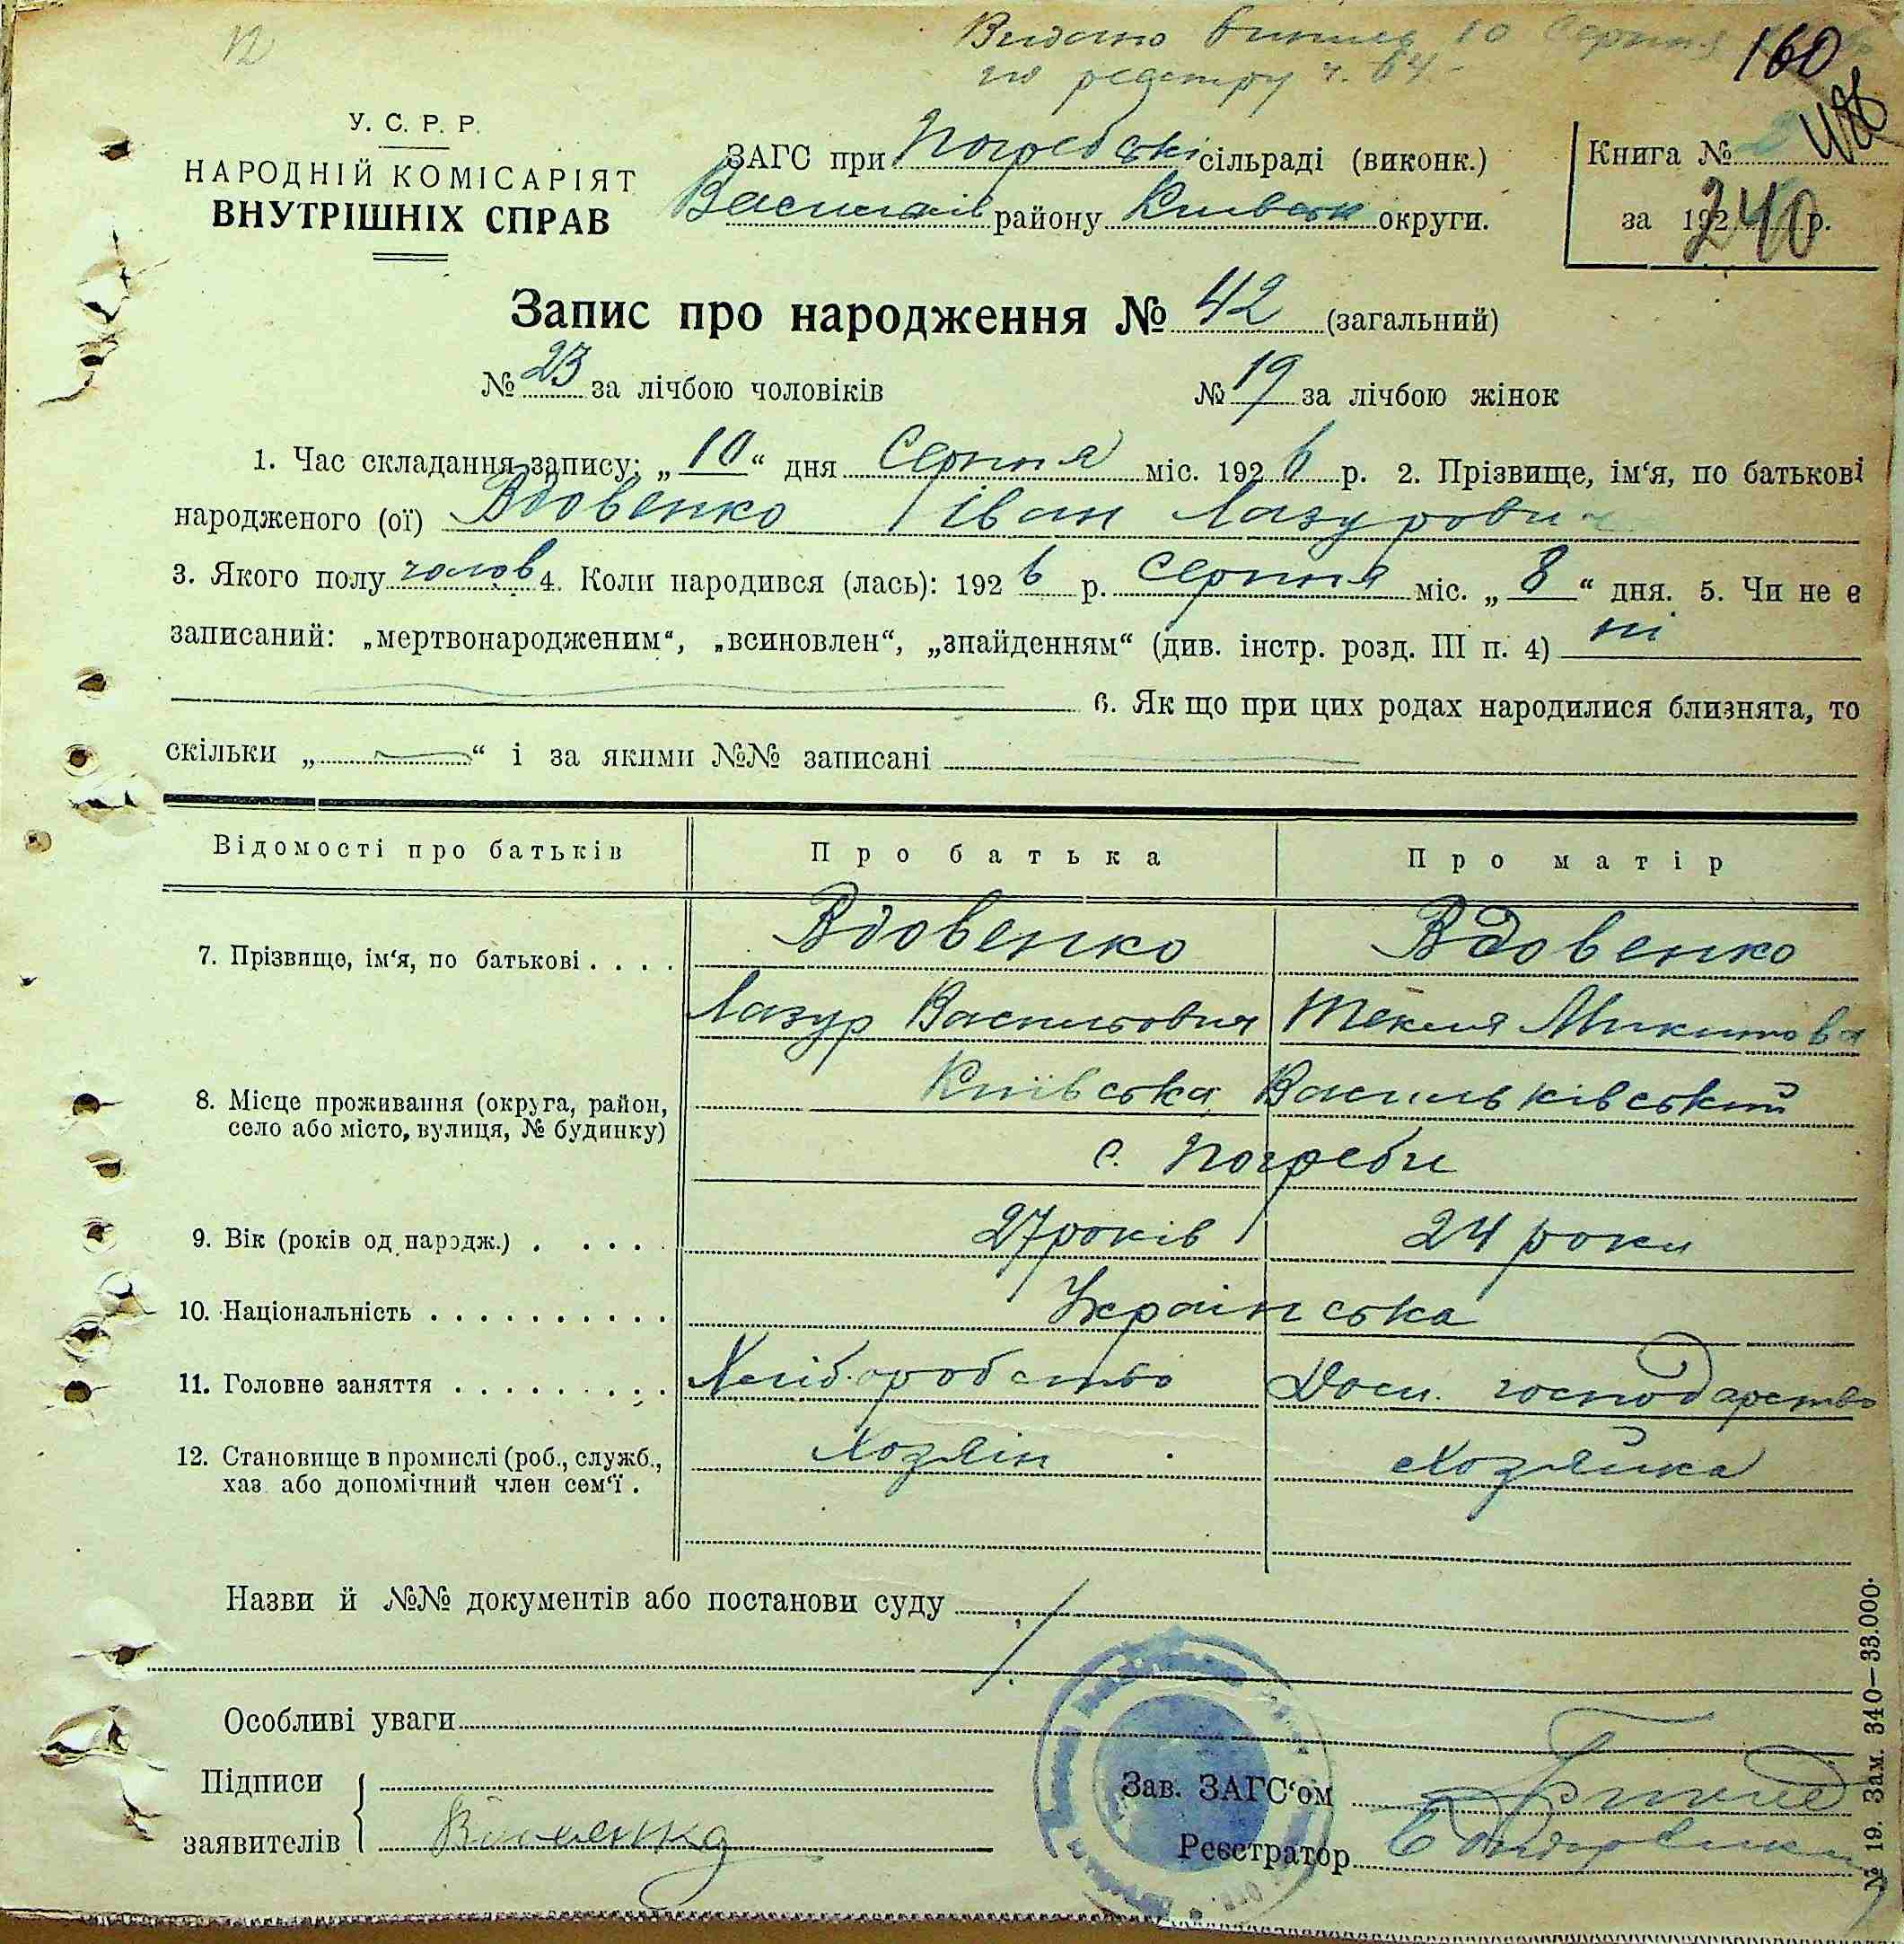 12
Видано випис 10 Серпня
по реєстру ч. 64.
160
У. С. Р. Р.
НАРОДНІЙ КОМІСАРІЯТ
ВНУТРІШНІХ СПРАВ
ЗАГС при Погребські сільраді (виконк.)
Васильків району Київськ округи.
Книга №
за 192 р.
240
Запис про народження № 42 (загальний)
№ 23 за лічбою чоловіків № 19 за лічбою жінок
1. Час складання запису: „10“ дня Серпня міс. 1926 р. 2. Прізвище, ім‘я, по батькові
народженого (ої) Вдовенко Іван Лазурович
3. Якого полу чолов 4. Коли народився (лась): 1926 р. Серпня міс. „8“ дня. 5. Чи не є
записаний: „мертвонародженим“, „всиновлен“, „знайденням“ (див. інстр. розд. III п. 4) ні
6. Як що при цих родах народилися близнята, то
скільки „ “ і за якими №№ записані
Відомості про батьків Про батька Про матір
7. Прізвище, ім‘я, по батькові . . . . Вдовенко Вдовенко
Лазур Васильович Текля Микитова
8. Місце проживання (округа, район, Київська, Васильківський
село або місто, вулиця, № будинку)
с. Погреби
9. Вік (років од народж.) . . . . . 27 років 24 роки
10. Національність . . . . . . . . . . Українська
11. Головне заняття . . . . . . . . . . Хліборобство Дом. господарство
12. Становище в промислі (роб., служб., Хозяїн Хозяйка
хаз. або допомічний член сем‘ї .
Назви й №№ документів або постанови суду
Особливі уваги
Підписи
заявителів Вдовенко
Зав. ЗАГС‘ом
Реєстратор
№ 19. Зам. 340—33.000.